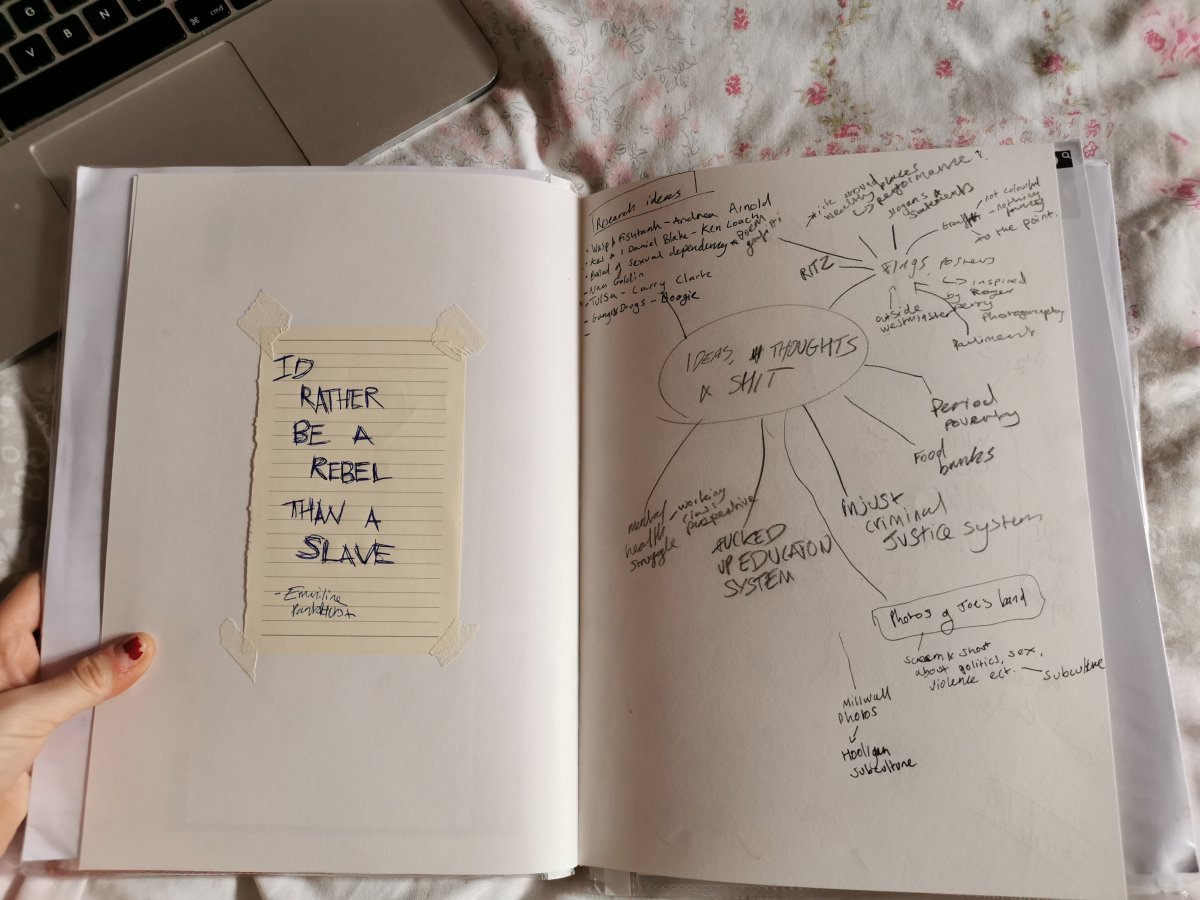 G
V
B
N
M
⌘
cmd
ID
RATHER
BE A
REBEL
THAN A
SLAVE
Research ideas
• Wasp & Fishtank - Andrea Arnold
• Kes & I Daniel Blake - Ken Loach
• Ballad of sexual dependency
- Nan Goldin
• Tulsa - Larry Clark
- Boogie
poem
graffiti
wealthy places
performance?
slogans &
statements
not coloured
- nothing
fancy
to the point.
RITZ
posters
inspired
by Roger
Perry
outside
westminster
Photography
IDEAS, THOUGHTS
& SHIT
Period
poverty
Food
banks
injust
criminal
justice system
FUCKED
UP EDUCATION
SYSTEM
mental
health
struggle
- working
class
perspective
Photos of Joe's band
scream & shout
about politics, sex,
violence ect.
subculture
Millwall
photos
Hooligan
subculture